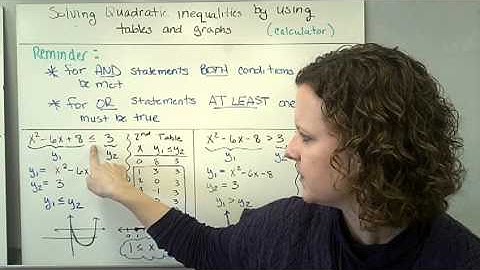 Solving Quadratic inequalities by using
tables and graphs (calculator)
Reminder:
* for AND statements BOTH conditions
be met
* for OR statements AT LEAST one
must be true
x² - 6x + 8 ≤ 3
y₁ y₂
y₁ = x² - 6x
y₂ = 3
y₁ ≤ y₂
2nd Table
x y₁ ≤ y₂
0 8 3
1 3 3
2 0 3
3 -1 3
1 ≤ x
x² - 6x - 8 > 3
y₁ y₂
y₁ = x² - 6x - 8
y₂ = 3
y₁ > y₂